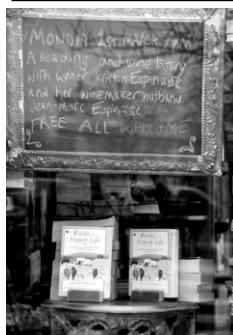 MONDAY 1st MARCH 7PM
A reading and wine tasting
with writer Kristin Espinasse
and her winemaker husband
Jean-Marc Espinasse
FREE ALL WELCOME
Words in a
French Life
Words in a
French Life